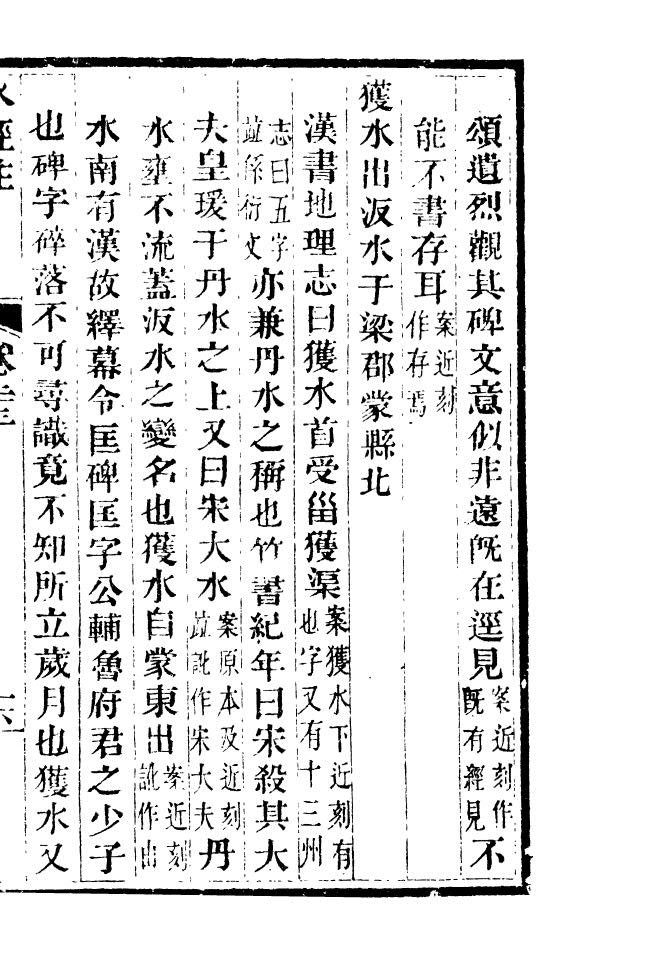 頌遺烈觀其碑文意似非遠旣在逕見案近刻作旣有經見不
能不書存耳案近刻作存焉
獲水出汳水于梁郡蒙縣北
漢書地理志曰獲水首受甾獲渠案獲水下近刻有也字又有十三州
志曰五字竝係衍文亦兼丹水之稱也竹書紀年曰宋殺其大
夫皇瑗于丹水之上又曰宋大水案原本及近刻竝訛作宋大夫丹
水壅不流蓋汳水之變名也獲水自蒙東出案近刻訛作由
水南有漢故繹幕令匡碑匡字公輔魯府君之少子
也碑字碎落不可尋識竟不知所立歲月也獲水又
水經注 卷二十三